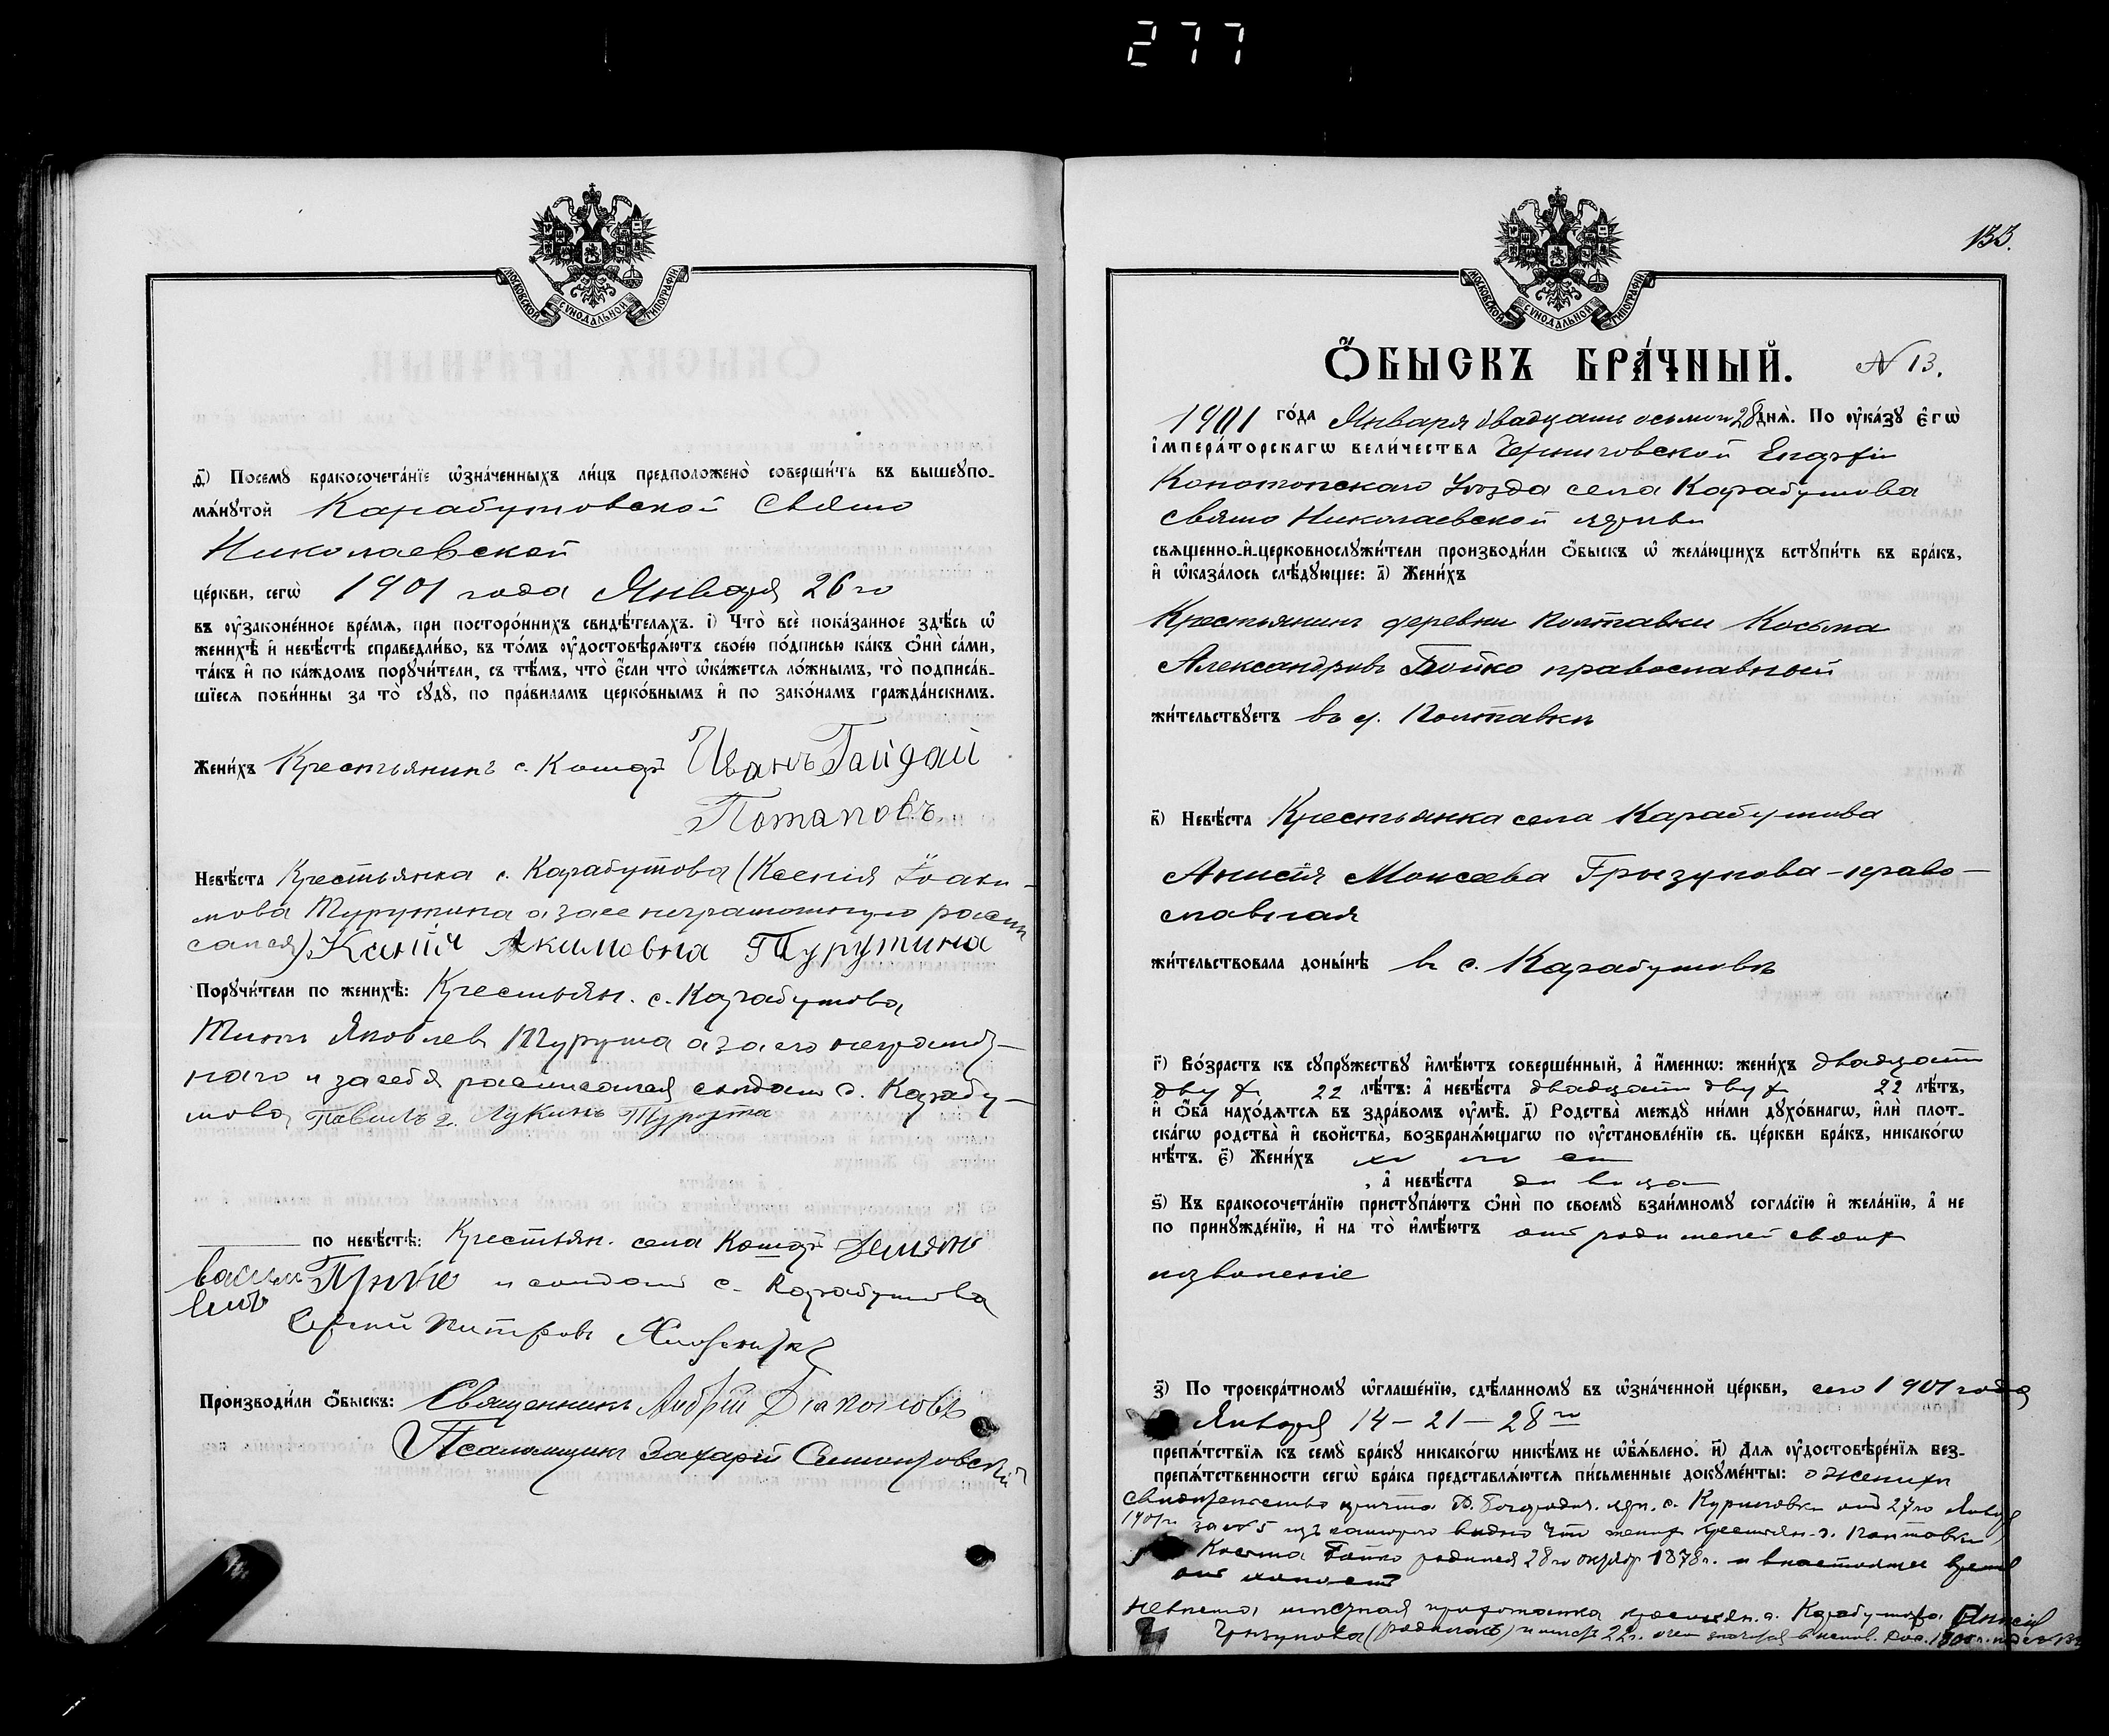 277
МОСКОВСКОЙ СѴНОДАЛЬНОЙ ТИПОГРАФІИ
д҃) Посемꙋ бракосочета́нїе ѡ҆зна́ченныхъ ли́цъ предположено̀ соверши́ть въ вышеꙋпо-
мѧ́нꙋтой Карабутовской Свято
Николаевской
це́ркви, сегѡ̀ 1901 года Января 26 го
въ ᲂу҆законе́нное вре́мѧ, при посторо́ннихъ свидѣ́телѧхъ. і҃) Что̀ всѐ пока́занное здѣ́сь ѡ҆
женихѣ̀ и҆ невѣ́стѣ справедли́во, въ то́мъ ᲂу҆достовѣрѧ́ютъ свое́ю по́дписью ка́къ ѻ҆нѝ са́ми,
та́къ и҆ по ка́ждомъ порꙋчи́тели, съ тѣ́мъ, что̀ є҆́сли что̀ ѡ҆ка́жется ло́жнымъ, то̀ подписа́в-
шїесѧ пови́нны за то̀ сꙋдꙋ̀, по пра́виламъ церко́внымъ и҆ по зако́намъ гражда́нскимъ.
Жени́хъ Крестьянинъ с. Кошар Иванъ Гайдай
Потаповъ
Невѣ́ста Крестьянка с. Карабутова (Ксенія Іоаки-
мова Турутина а за ее неграмотную распи
сался) Ксинія Акимовна Турутина
Порꙋчи́тели по женихѣ̀: Крестьян. с. Карабутова
Яковлев Турута а за его неграмот-
наго и за себя расписался солдат с. Карабу-
това Павилъ Лукинъ Турута
по невѣ́стѣ: Крестьян. села Кошар Демянъ
Васильевичъ и солдат с. Карабутова
Сергей Питровъ
Производи́ли ѻ҆́быскъ: Священникъ Андрей Діаконовъ
Псаломщикъ Захарій
МОСКОВСКОЙ СѴНОДАЛЬНОЙ ТИПОГРАФІИ
133.
Ѻ҆́быскъ бра́чный. № 13.
1901 го́да Января двадцать осьмого 28 днѧ̀. По ᲂу҆ка́зꙋ є҆гѡ̀
і҆мпера́торскагѡ вели́чества Черниговской Епархіи
Конотопскаго Уѣзда села Карабутова
Свято Николаевской церкви
свѧще́нно-и҆-церковнослꙋжи́тели производи́ли ѻ҆́быскъ ѡ҆ жела́ющихъ встꙋпи́ть въ бра́къ,
и҆ ѡ҆каза́лось слѣ́дꙋющее: а҃) Жени́хъ
Крестьянинъ деревни Полтавки Косьма
Александровъ Бойко православный
жи́тельствꙋетъ въ д. Полтавки
в҃) Невѣ́ста Крестьянка села Карабутова
Анисія Моисеева Грызунова - право-
славная
жи́тельствовала доны́нѣ в с. Карабутовѣ
г҃) Во́зрастъ къ сꙋпрꙋ́жествꙋ и҆мѣ́ютъ соверше́нный, а҆ и҆́меннѡ: жени́хъ двадцати
двух 22 лѣ́тъ: а҆ невѣ́ста двадцати двух 22 лѣ́тъ,
и҆ ѻ҆́ба нахо́дѧтсѧ въ здра́вомъ ᲂу҆мѣ̀. д҃) Родства̀ междꙋ̀ ни́ми дꙋхо́внагѡ, и҆лѝ плот-
ска́гѡ родства̀ и҆ сво́йства, возбранѧ́ющагѡ по ᲂу҆становле́нїю св. це́ркви бра́къ, никако́гѡ
нѣ́тъ. є҃) Жени́хъ холост
, а҆ невѣ́ста девица
ѕ҃) Къ бракосочета́нїю пристꙋпа́ютъ ѻ҆нѝ по своемꙋ̀ взаи́мномꙋ согла́сїю и҆ жела́нїю, а҆ не
по принꙋжде́нїю, и҆ на то̀ и҆мѣ́ютъ от родителей своих
позволеніе
з҃) По троекра́тномꙋ ѡ҆глаше́нїю, сдѣ́ланномꙋ въ ѡ҆зна́ченной це́ркви, сего 1901 года
Января 14 - 21 - 28 го
препѧ́тствїѧ къ семꙋ̀ бра́кꙋ никако́гѡ никѣ́мъ не ѡ҆б̾ѧ́влено. и҃) Длѧ ᲂу҆достовѣре́нїѧ без-
препѧ́тственности сегѡ̀ бра́ка представлѧ́ютсѧ пи́сьменные докꙋме́нты: о женихѣ
свидѣтельство причта Р. Богород. церк. с. Куриловки от 27 го Января
1901 г. за № 5 из котораго видно что жених крестьян. д. Полтавки
Косьма Бойко родился 28 го октяб. 1878 г. и в настоящее время
он холост
невеста крестьян. с. Карабутова Анисія
Грызунова (родилась) 22 г.